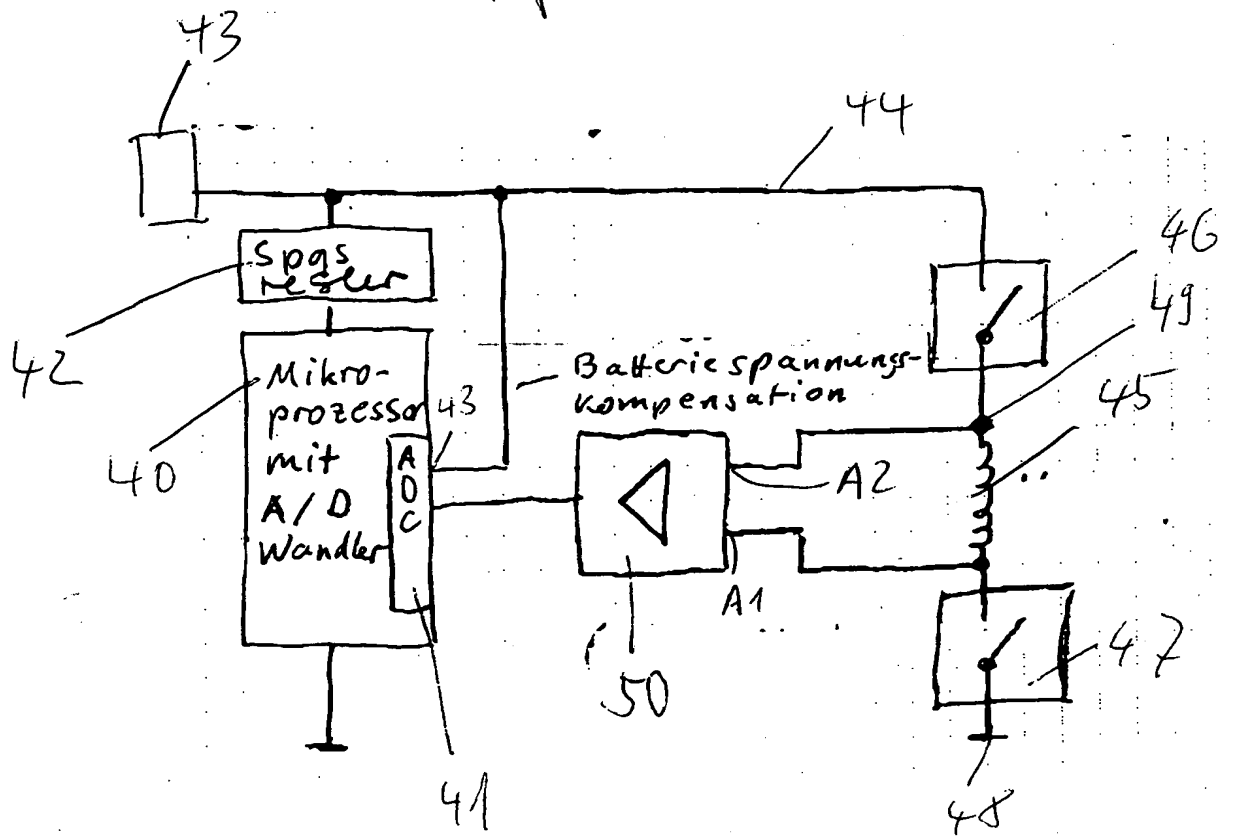 43
44
46
Spgs
regler
49
42
Mikro-
prozessor
mit
A/D
Wandler
43
Batteriespannungs-
kompensation
45
40
ADC
A2
A1
50
47
41
48